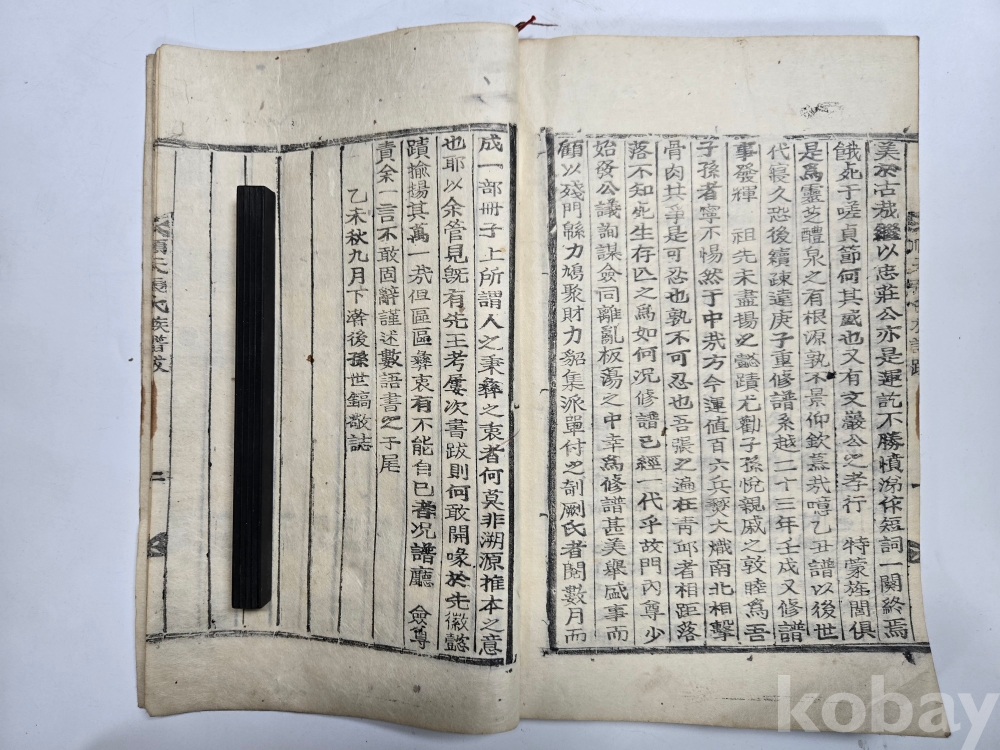 美於古哉繼以忠莊公亦是運訖不勝憤溺作短詞一闋終焉
餓死于嗟貞節何其盛也又有文嚴公之孝行 特蒙旌閭俱
是爲靈芝醴泉之有根源孰不景仰欽慕哉噫乙丑譜以後世
代寢久恐後續疎違庚子重修譜系越二十三年壬戌又修譜
事發輝 祖先未盡揚之懿蹟尤勸子孫悅親戚之敦睦爲吾
子孫者寧不惕然于中哉方今運値百六兵燹大熾南北相擊
骨肉共爭是可忍也孰不可忍也吾張之遍在靑邱者相距落
落不知死生存匹之爲如何況修譜已經一代乎故門內尊少
始發公議詢謀僉同雖亂板蕩之中幸爲修譜甚美擧盛事而
顧以殘門緜力鳩聚財力貂集派單付之剞劂氏者閱數月而
成一部冊子上所謂人之秉彝之衷者何莫非溯源推本之意
也耶以余管見旣有先王考屢次書跋則何敢開喙於先徽懿
蹟揄揚其萬一哉但區區彝衷有不能自已者況譜廳 僉尊
責余一言不敢固辭謹述數語書之于尾
乙未秋九月下澣後孫世鎬敬誌
氏族譜跋
二
kobay